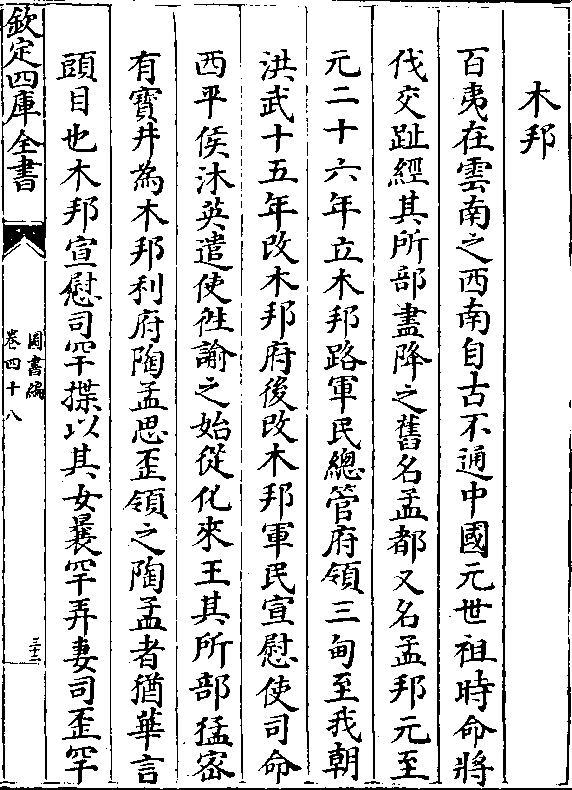 木邦
百夷在雲南之西南自古不通中國元世祖時命將
伐交趾經其所部盡降之舊名孟都又名孟邦元至
元二十六年立木邦路軍民總管府領三甸至我朝
洪武十五年改木邦府後改木邦軍民宣慰使司命
西平侯沐英遣使徃諭之始從化來王其所部猛宻
有寳井為木邦利府陶孟思歪領之陶孟者猶華言
頭目也木邦宣慰司罕揲以其女曩罕弄妻司歪罕
欽定四庫全書
圖書編
卷四十八
三十二